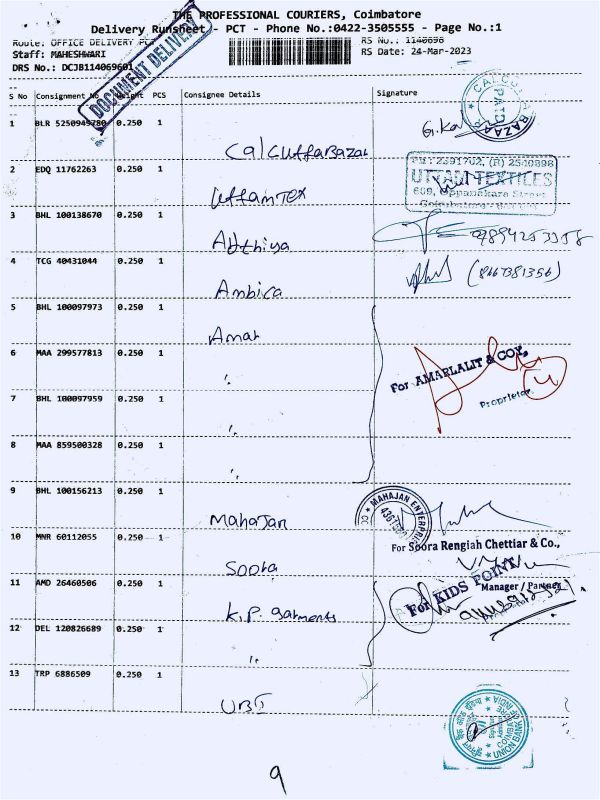 THE PROFESSIONAL COURIERS, Coimbatore
Delivery Runsheet - PCT - Phone No.:0422-3505555 - Page No.:1
Route: OFFICE DELIVERY PCT
RS No.: 1140696
Staff: MAHESHWARI
RS Date: 24-Mar-2023
DRS No.: DCJB114069601
DOCUMENT DELIVERY
S No Consignment No Weight PCS Consignee Details Signature
1 BLR 5250949780 0.250 1 CalcuttaBazar G.Ka
CALCUTTA BAZAAR
2 EDQ 11762263 0.250 1 UttamTex
PH : 2391702, (R) 2540898
UTTAM TEXTILES
609, Oppanakara Street
Coimbatore
3 BHL 100138670 0.250 1 Adthiya
4 TCG 40431044 0.250 1 Ambica (8667381356)
5 BHL 100097973 0.250 1 Amar
6 MAA 299577813 0.250 1 "
For AMARLALIT & COY,
4
Proprietor
7 BHL 100097959 0.250 1 "
8 MAA 859500328 0.250 1 "
9 BHL 100156213 0.250 1 Mahajan
MAHAJAN ENTERPRISES
10 MNR 60112055 0.250 1 Soora
For Soora Rengiah Chettiar & Co.,
Manager / Partner
11 AMD 26460506 0.250 1 K.P. Garments
For KIDS POINT
12 DEL 120826689 0.250 1 "
13 TRP 6886509 0.250 1 UBI
UNION BANK OF INDIA
9